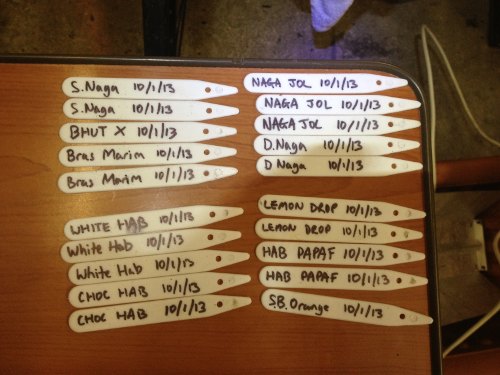 S.Naga 10/1/13
S.Naga 10/1/13
BHUT X 10/1/13
Bras Marim 10/1/13
Bras Marim 10/1/13
NAGA JOL 10/1/13
NAGA JOL 10/1/13
NAGA JOL 10/1/13
D.Naga 10/1/13
D Naga 10/1/13
WHITE HAB 10/1/13
White Hab 10/1/13
White Hab 10/1/13
CHOC HAB 10/1/13
CHOC HAB 10/1/13
LEMON DROP 10/1/13
LEMON DROP 10/1/13
HAB PAPAF 10/1/13
HAB PAPAF 10/1/13
S.B.Orange 10/1/13